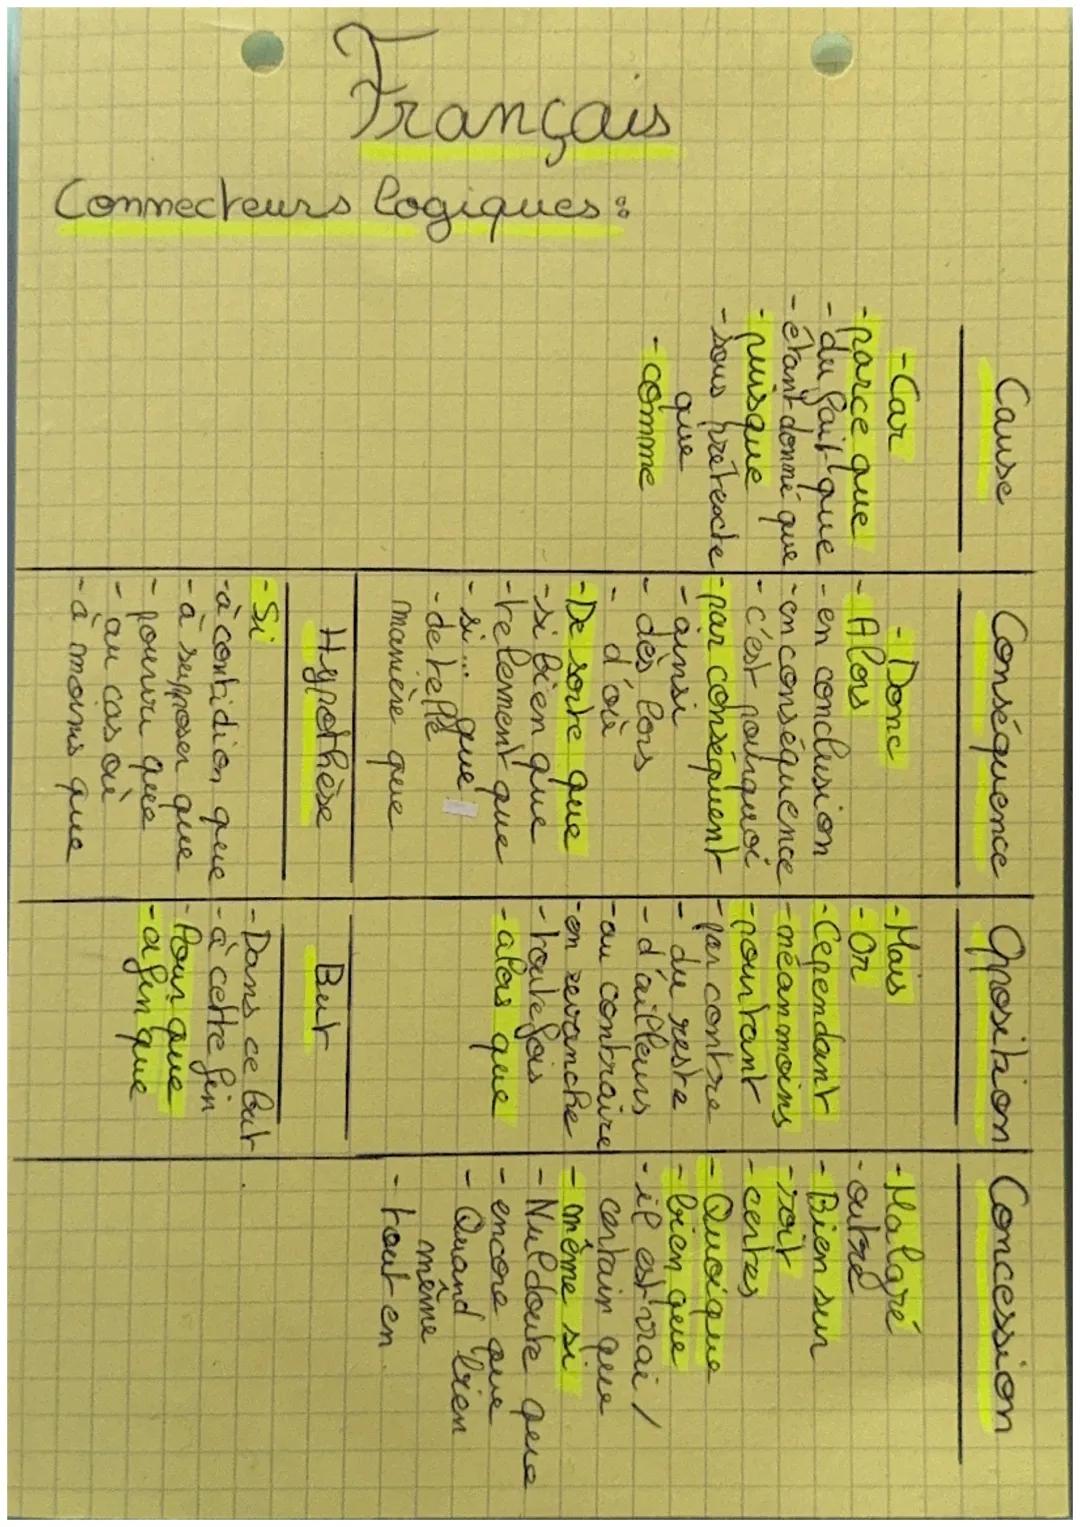 Français
Connecteurs logiques :
Cause
- Car
- parce que
- du fait que
- étant donné que
- puisque
- sous prétexte
que
- comme
Conséquence
- Donc
- Alors
- en conclusion
- en conséquence
- c'est pourquoi
- par conséquent
- ainsi
- dès lors
- d'où
- De sorte que
- si bien que
- tellement que
- si... que
- de telle
manière que
Opposition
- Mais
- Or
- Cependant
- néanmoins
- pourtant
- par contre
- du reste
- d'ailleurs
- au contraire
- en revanche
- toutefois
- alors que
Concession
- Malgré
- outre
- Bien sur
- soit
- certes
- Quoique
- bien que
- il est vrai /
certain que
- même si
- Nul doute que
- encore que
- Quand bien
même
- tout en
Hypothèse
- Si
- à contidion que
- à supposer que
- pourvu que
- au cas où
- à moins que
But
- Dans ce but
- à cette fin
- Pour que
- afin que